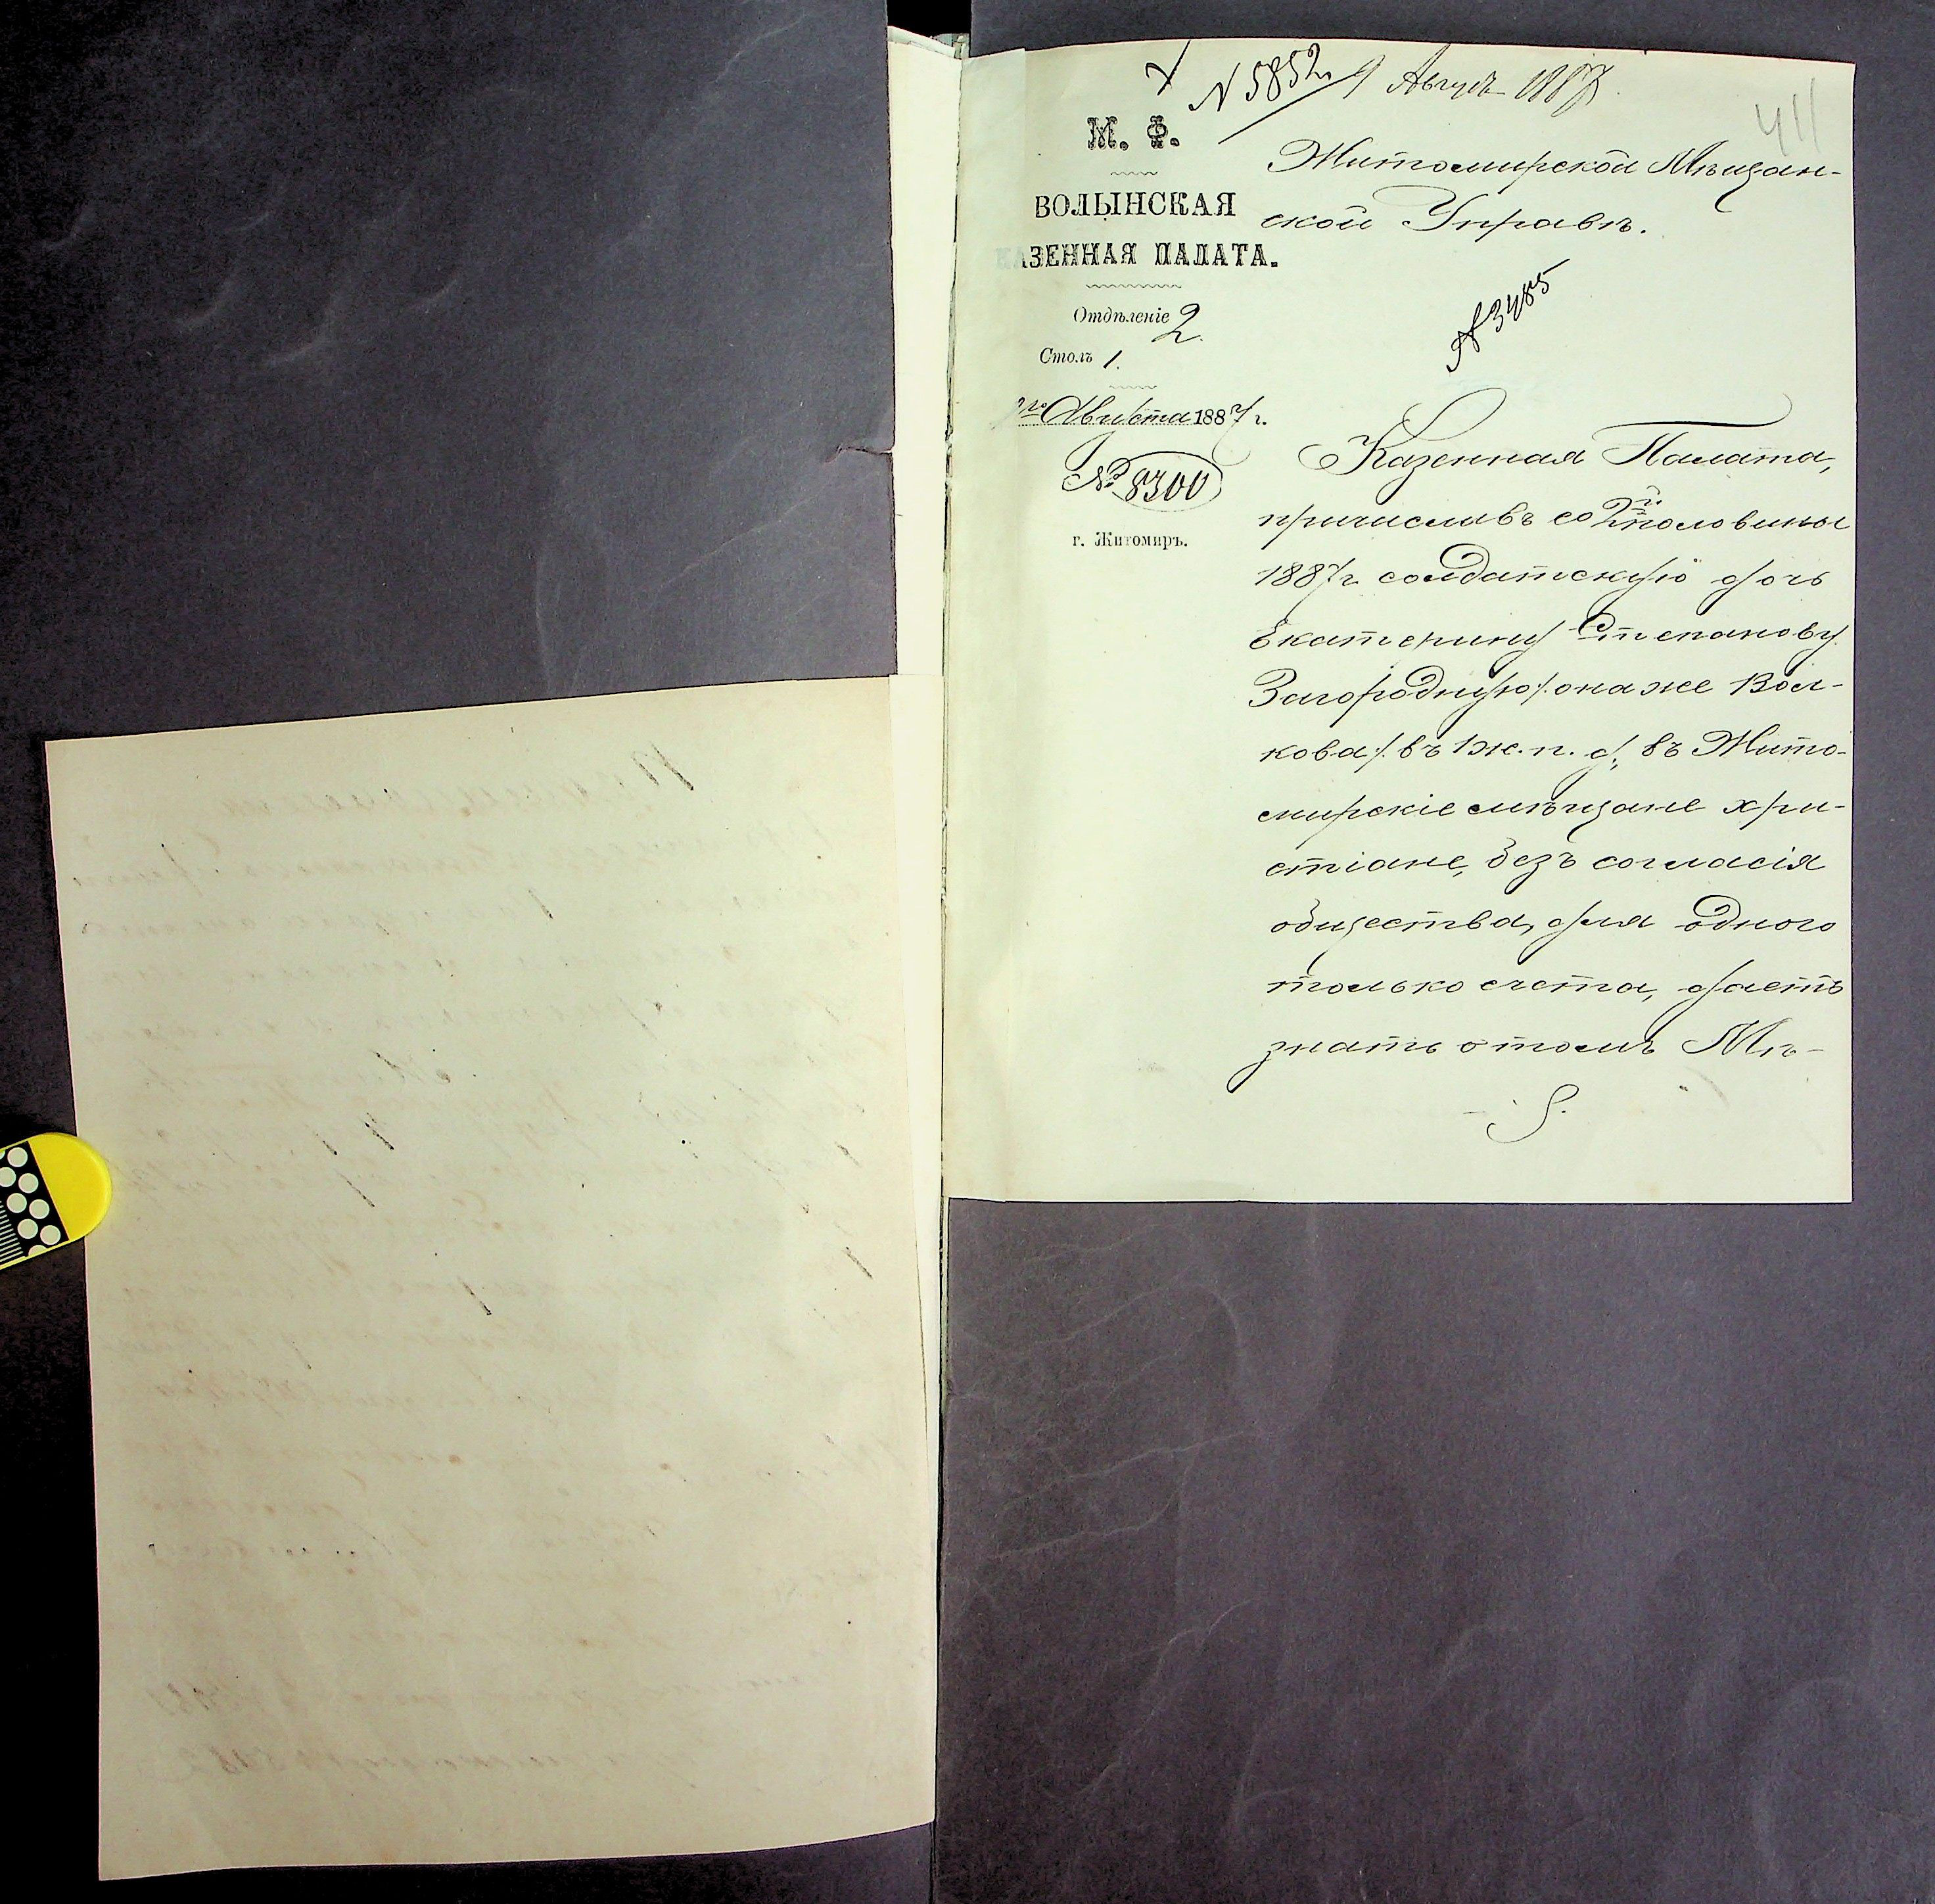 N 5852 9 Августа 1887
411
М. Ф.
ВОЛЫНСКАЯ
КАЗЕННАЯ ПАЛАТА.
Отдѣленіе 2.
Столъ 1.
Августа 1887 г.
№ 8300
г. Житомиръ.
Житомирской Мѣщан-
ской Управѣ.
№ 3485
Казенная Палата,
причисливъ со 2й половины
1887 г солдатскую дочь
Екатерину Степанову
Загородную /:она же Вол-
кова:/ въ 1 ж. п. д, въ Жито-
мирскіе мѣщане хри-
стіане, безъ согласія
общества, для одного
только счета, даетъ
знать о томъ Мѣ-